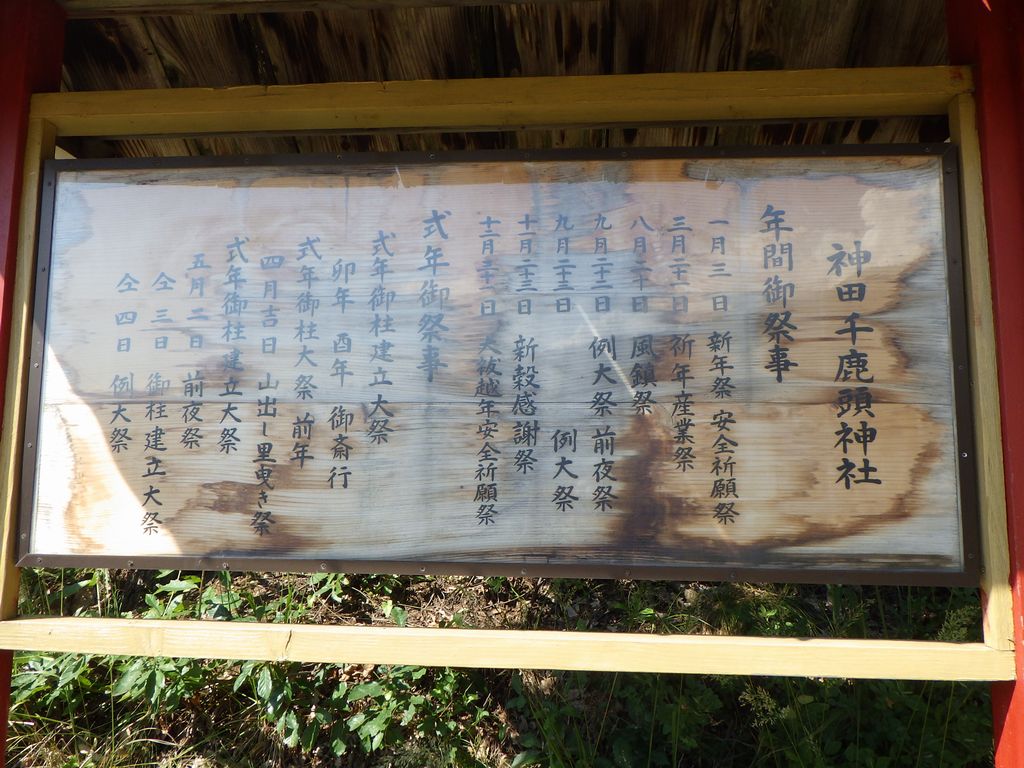 神田千鹿頭神社
年間御祭事
一月三日 新年祭 安全祈願祭
三月二十一日 祈年産業祭
八月二十日 風鎮祭
九月二十二日 例大祭 前夜祭
九月二十三日 例大祭
十一月二十三日 新穀感謝祭
十二月三十一日 大祓越年安全祈願祭
式年御祭事
式年御柱建立大祭
卯年 酉年 御斎行
式年御柱大祭 前年
四月吉日 山出し里曳き祭
式年御柱建立大祭
五月二日 前夜祭
仝 三日 御柱建立大祭
仝 四日 例大祭